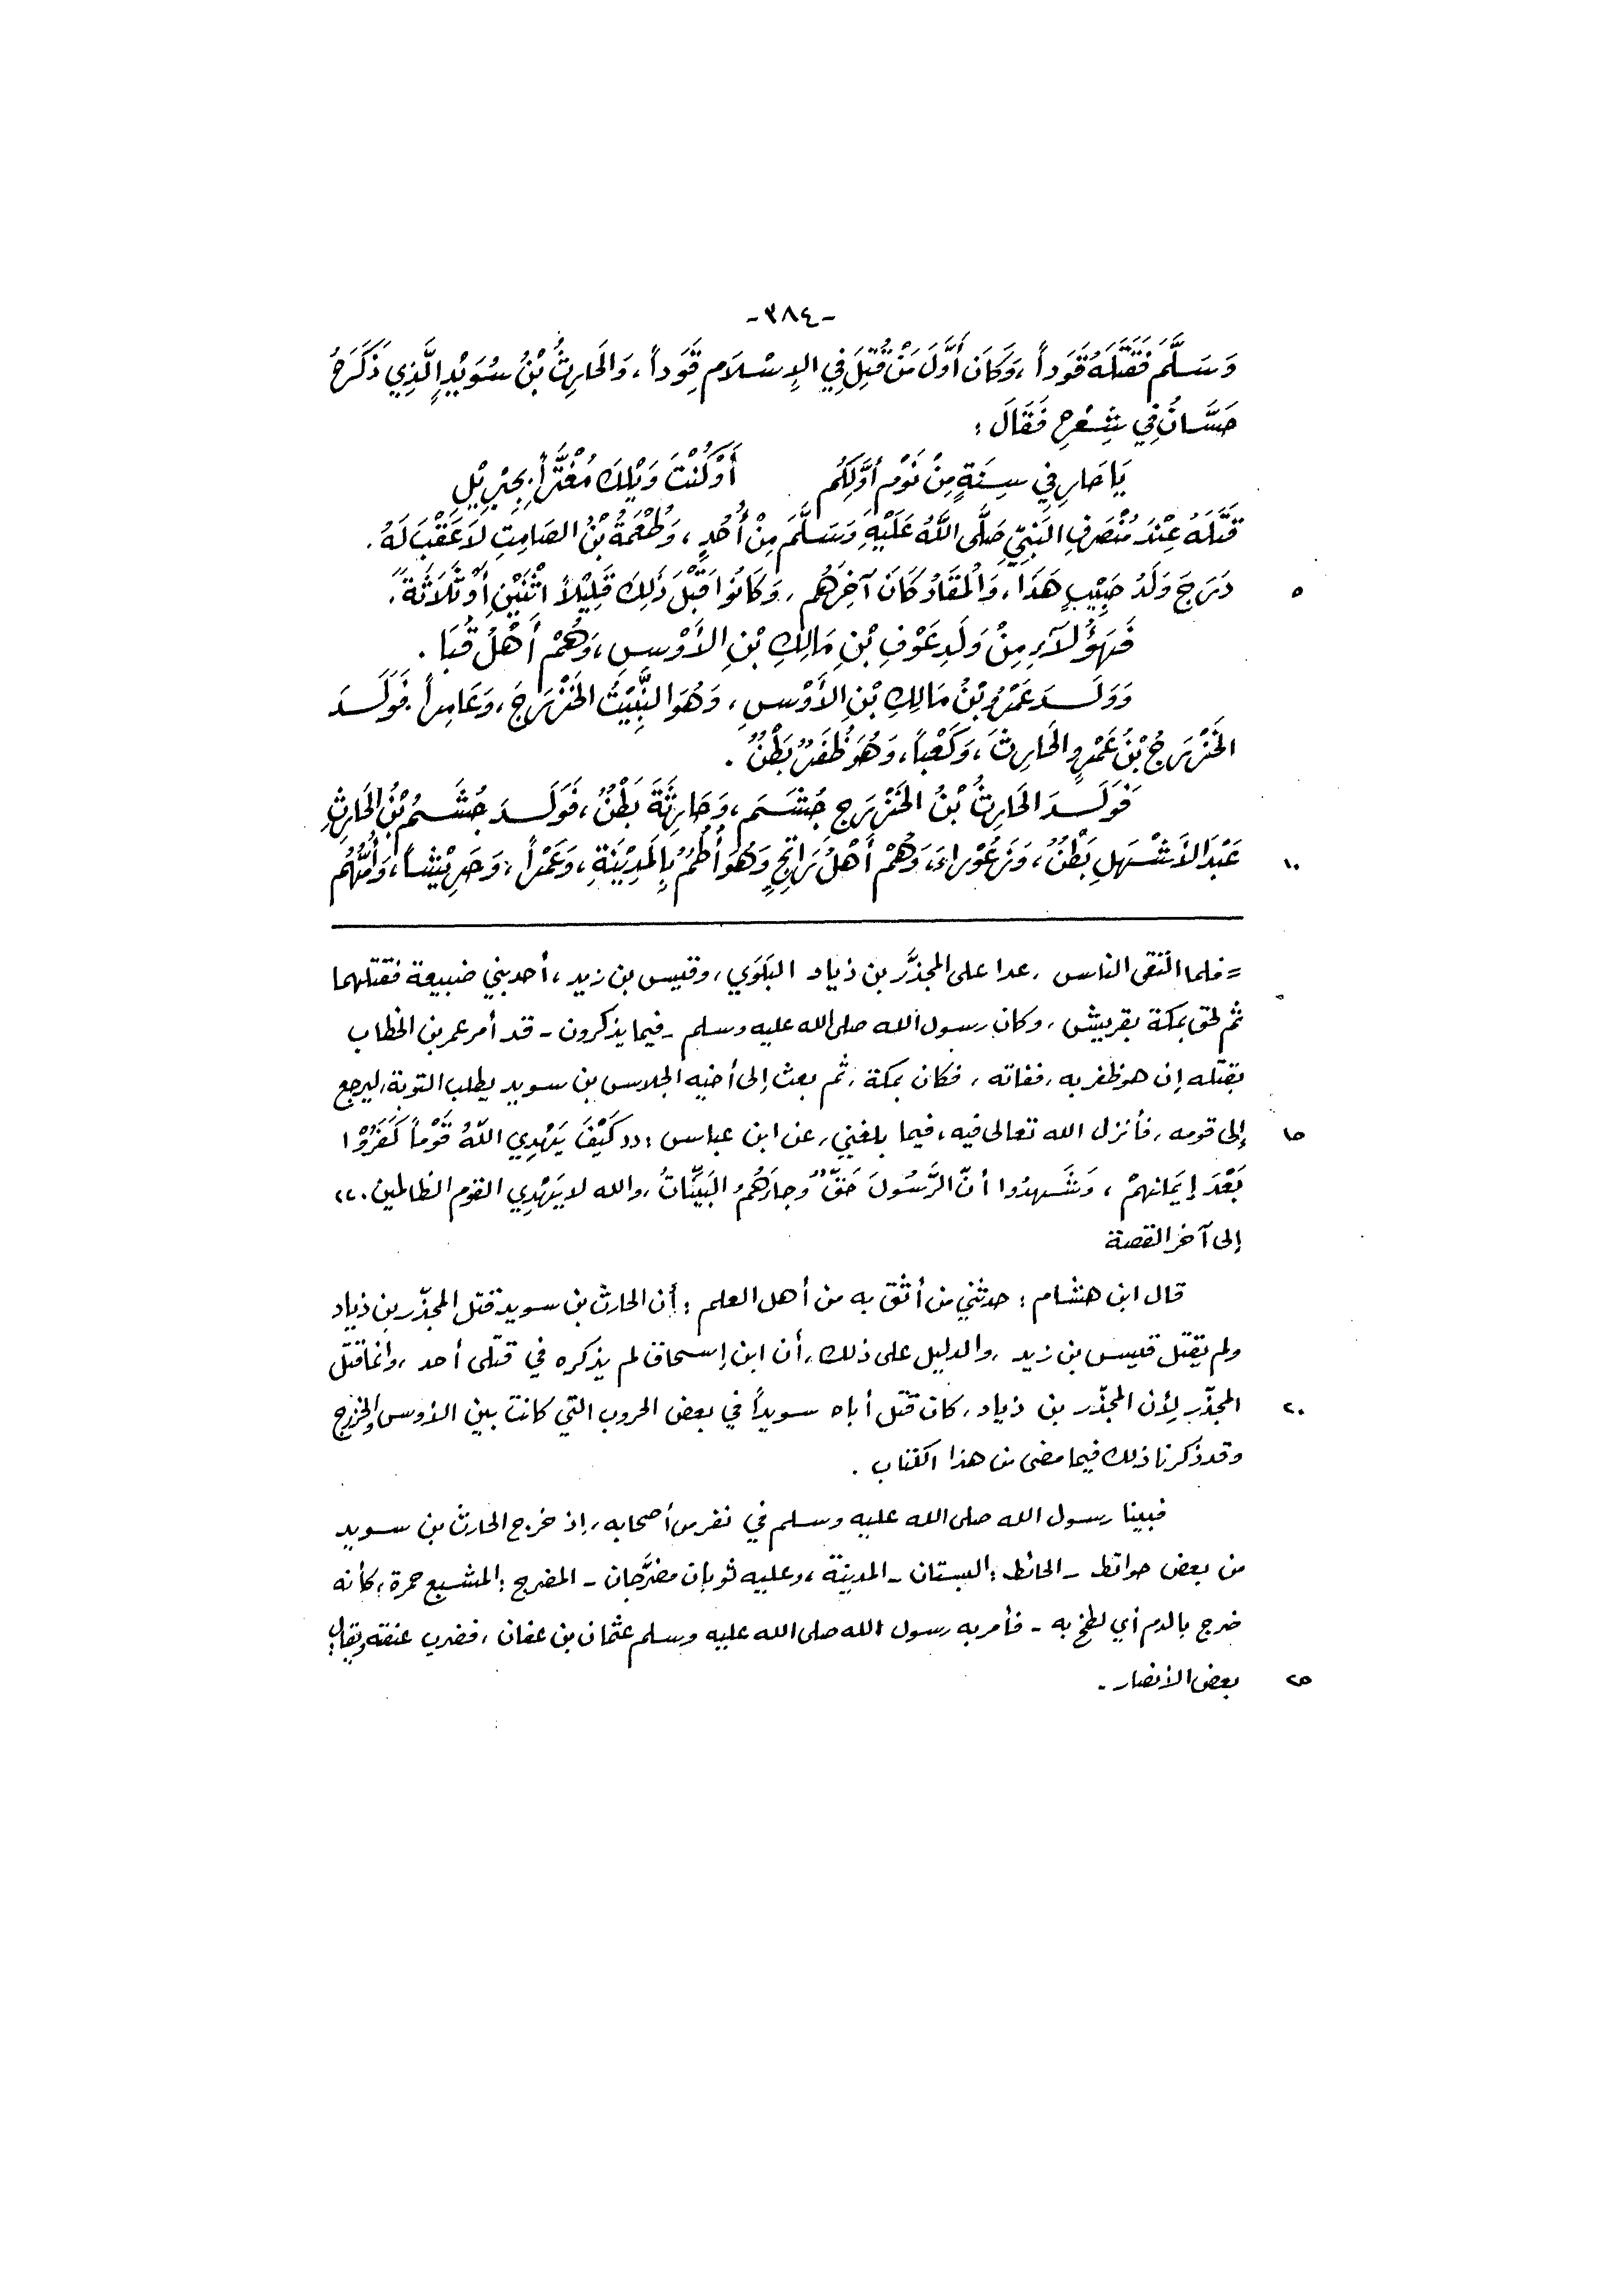 -٣٨٤-
وَسَلَّمَ فَقَتَلَهُ قَوَداً، وَكَانَ أَوَّلَ مَنْ قُتِلَ فِي الإِسْلَامِ قَوَداً، وَالحَارِثُ بْنُ سُوَيْدٍ الَّذِي ذَكَرَهُ
حَسَّانُ فِي شِعْرِهِ فَقَالَ:
يَا حَارِ فِي سِنَةٍ مِنْ نَوْمِ أَوَّلِكُم أَوْ كُنْتَ وَيْلَكَ مُغْتَرّاً بِجِبْرِيْلِ
قَتَلَهُ عِنْدَ مُنْصَرَفِ النَبِيِّ صَلَّى اللَّهُ عَلَيْهِ وَسَلَّمَ مِنْ أُحُدٍ، وَطُعْمَةُ بْنُ الصَامِتِ لاَ عَقْبَ لَهُ.
٥ دَرَجَ وَلَدُ حَبِيْبٍ هَذَا، وَالْمِقَدُ كَانَ آخِرَهُم، وَكَانُوا قَبْلَ ذَلِكَ قَلِيْلاً اثْنَيْنِ أَوْ ثَلاَثَةً.
فَهَؤُلاَءِ مِنْ وَلَدِ عَوْفِ بْنِ مَالِكِ بْنِ الأَوْسِ، وَهُمْ أَهْلُ قُبَا.
وَوَلَدَ عَمْرُو بْنُ مَالِكِ بْنِ الأَوْسِ، وَهُوَ النَّبِيْتُ الخَزْرَجَ، وَعَامِراً. فَوَلَدَ
الخَزْرَجُ بْنُ عَمْرٍو الحَارِثَ، وَكَعْباً، وَهُوَ ظُفَرٌ بَطْنٌ.
فَوَلَدَ الحَارِثُ بْنُ الخَزْرَجِ جُشَمَ، وَحَارِثَةَ بَطْنٌ، فَوَلَدَ جُشَمُ بْنُ الحَارِثِ
١٠ عَبْدَ الأَشْهَلِ بَطْنٌ، وَزَعُوْرَاءَ، وَهُمْ أَهْلُ رَاتِجٍ وَهُوَ أُطُمٌ بِالمَدِيْنَةِ، وَعَمْراً، وَحَرِيْشاً، وَأُمُّهُم
= فلما التقى الناس، عدا على المجذَّر بن ذياد البَلَوَي، وقيس بن زيد، أحد بني ضبيعة فقتلهما
ثم لحق بمكة بقريش، وكان رسول الله صلى الله عليه وسلم - فيما يذكرون - قد أمر عمر بن الخطاب
بقتله إن هو ظفر به، ففاته، فكان بمكة، ثم بعث إلى أخيه الجلاس بن سويد يطلب التوبة، ليرجع
١٥ إلى قومه، فأنزل الله تعالى فيه، فيما بلغني، عن ابن عباس: «كَيْفَ يَهْدِي اللَّهُ قَوْماً كَفَرُوْا
بَعْدَ إِيَمانهِمْ، وَشَهِدُوا أنّ الرَّسُولَ حَقٌّ وجاءَهُمُ البَيِّنَاتُ، والله لا يَهْدِي القوم الظالمين.»
إلى آخر القصة
قال ابن هشام: حدثني من أثق به من أهل العلم: أن الحارث بن سويد قتل المجذّر بن ذياد
ولم يقتل قيس بن زيد، والدليل على ذلك، أن ابن إسحاق لم يذكره في قتلى أحد، وانما قتل
٢٠ المجذّر لأن المجذّر بن ذياد، كان قتل أباه سويداً في بعض الحروب التي كانت بين الأوس والخزرج
وقد ذكرنا ذلك فيما مضى من هذا الكتاب.
فبينا رسول الله صلى الله عليه وسلم في نفر من أصحابه، إذ خرج الحارث بن سويد
من بعض حوائط - الحائط: البستان - المدينة، وعليه ثوبان مضرَّجان - المضرج: المشبع حمرة، كأنه
ضرج بالدم أي لطخ به - فأمر به رسول الله صلى الله عليه وسلم عثمان بن عفان، فضرب عنقه ويقال:
٢٥ بعض الأنصار.